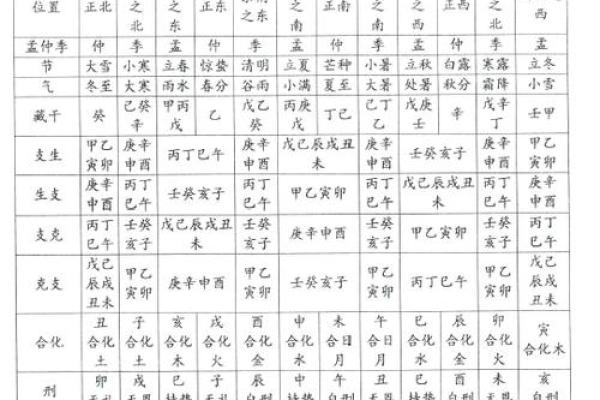 位置
正北
之
北
之东
正东
之东
之
南
正南
之
南
之
正西
之
北
西
孟仲季 仲 季 孟 仲 季 孟 仲 季 孟 仲 季 孟
节 大雪 小寒 立春 惊蛰 清明 立夏 芒种 小暑 立秋 白露 寒露 立冬
气 冬至 大寒 雨水 春分 谷雨 小满 夏至 大暑 处暑 秋分 霜降 小雪
藏干
癸
己癸
辛
甲丙
戊
乙
戊乙
癸
丙庚
戊
丁己
己丁
乙
戊庚
壬
辛
戊辛
丁
壬甲
支生
甲乙
寅卯
庚辛
申酉
丙丁巳午
庚辛
申酉
戊己辰戌丑
未
庚辛
申酉
壬癸亥子
庚辛
申酉
甲乙
寅卯
生支
庚辛
申酉
丙丁
巳午
壬癸亥子
丙丁
巳午
甲乙寅卯
丙丁
巳午
戊己辰戌丑
未
丙丁
巳午
庚辛
申酉
支克
丙丁
巳午
壬癸
亥子
戊己辰戌丑
未
壬癸
亥子
庚辛申酉
壬癸
亥子
甲乙寅卯
壬癸
亥子
丙丁
巳午
克支
戊己
辰戌
丑未
甲乙
寅卯
庚辛申酉
甲乙
寅卯
壬癸亥子
甲乙
寅卯
丙丁巳午
甲乙
寅卯
戊己
辰戌
丑未
合化
丑
合化
土
子
合化
土
亥
合化
木
戌
合化
火
酉
合化
金
申
合化
水
未
合日
月
午
合日
月
巳
合化
水
辰
合化
金
卯
合化
火
寅
合化木
刑
卯
戌
巳
子
辰
午
丑
酉
未
亥